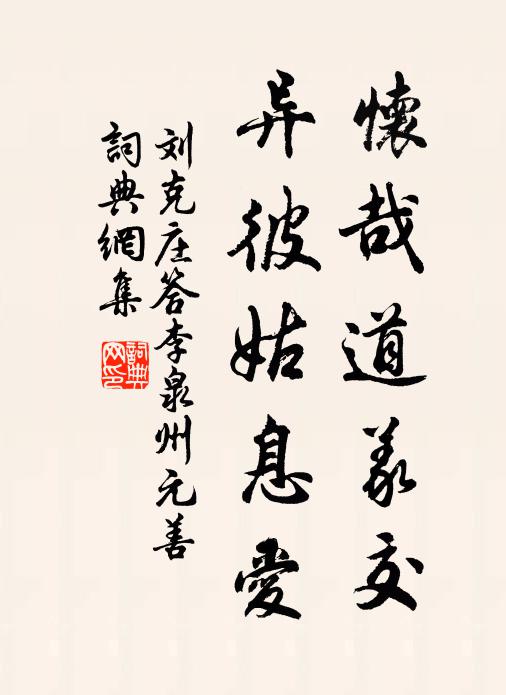 懷哉道義交
异彼姑息愛
刘克庄答李泉州元善
詞典網集
詞典网印